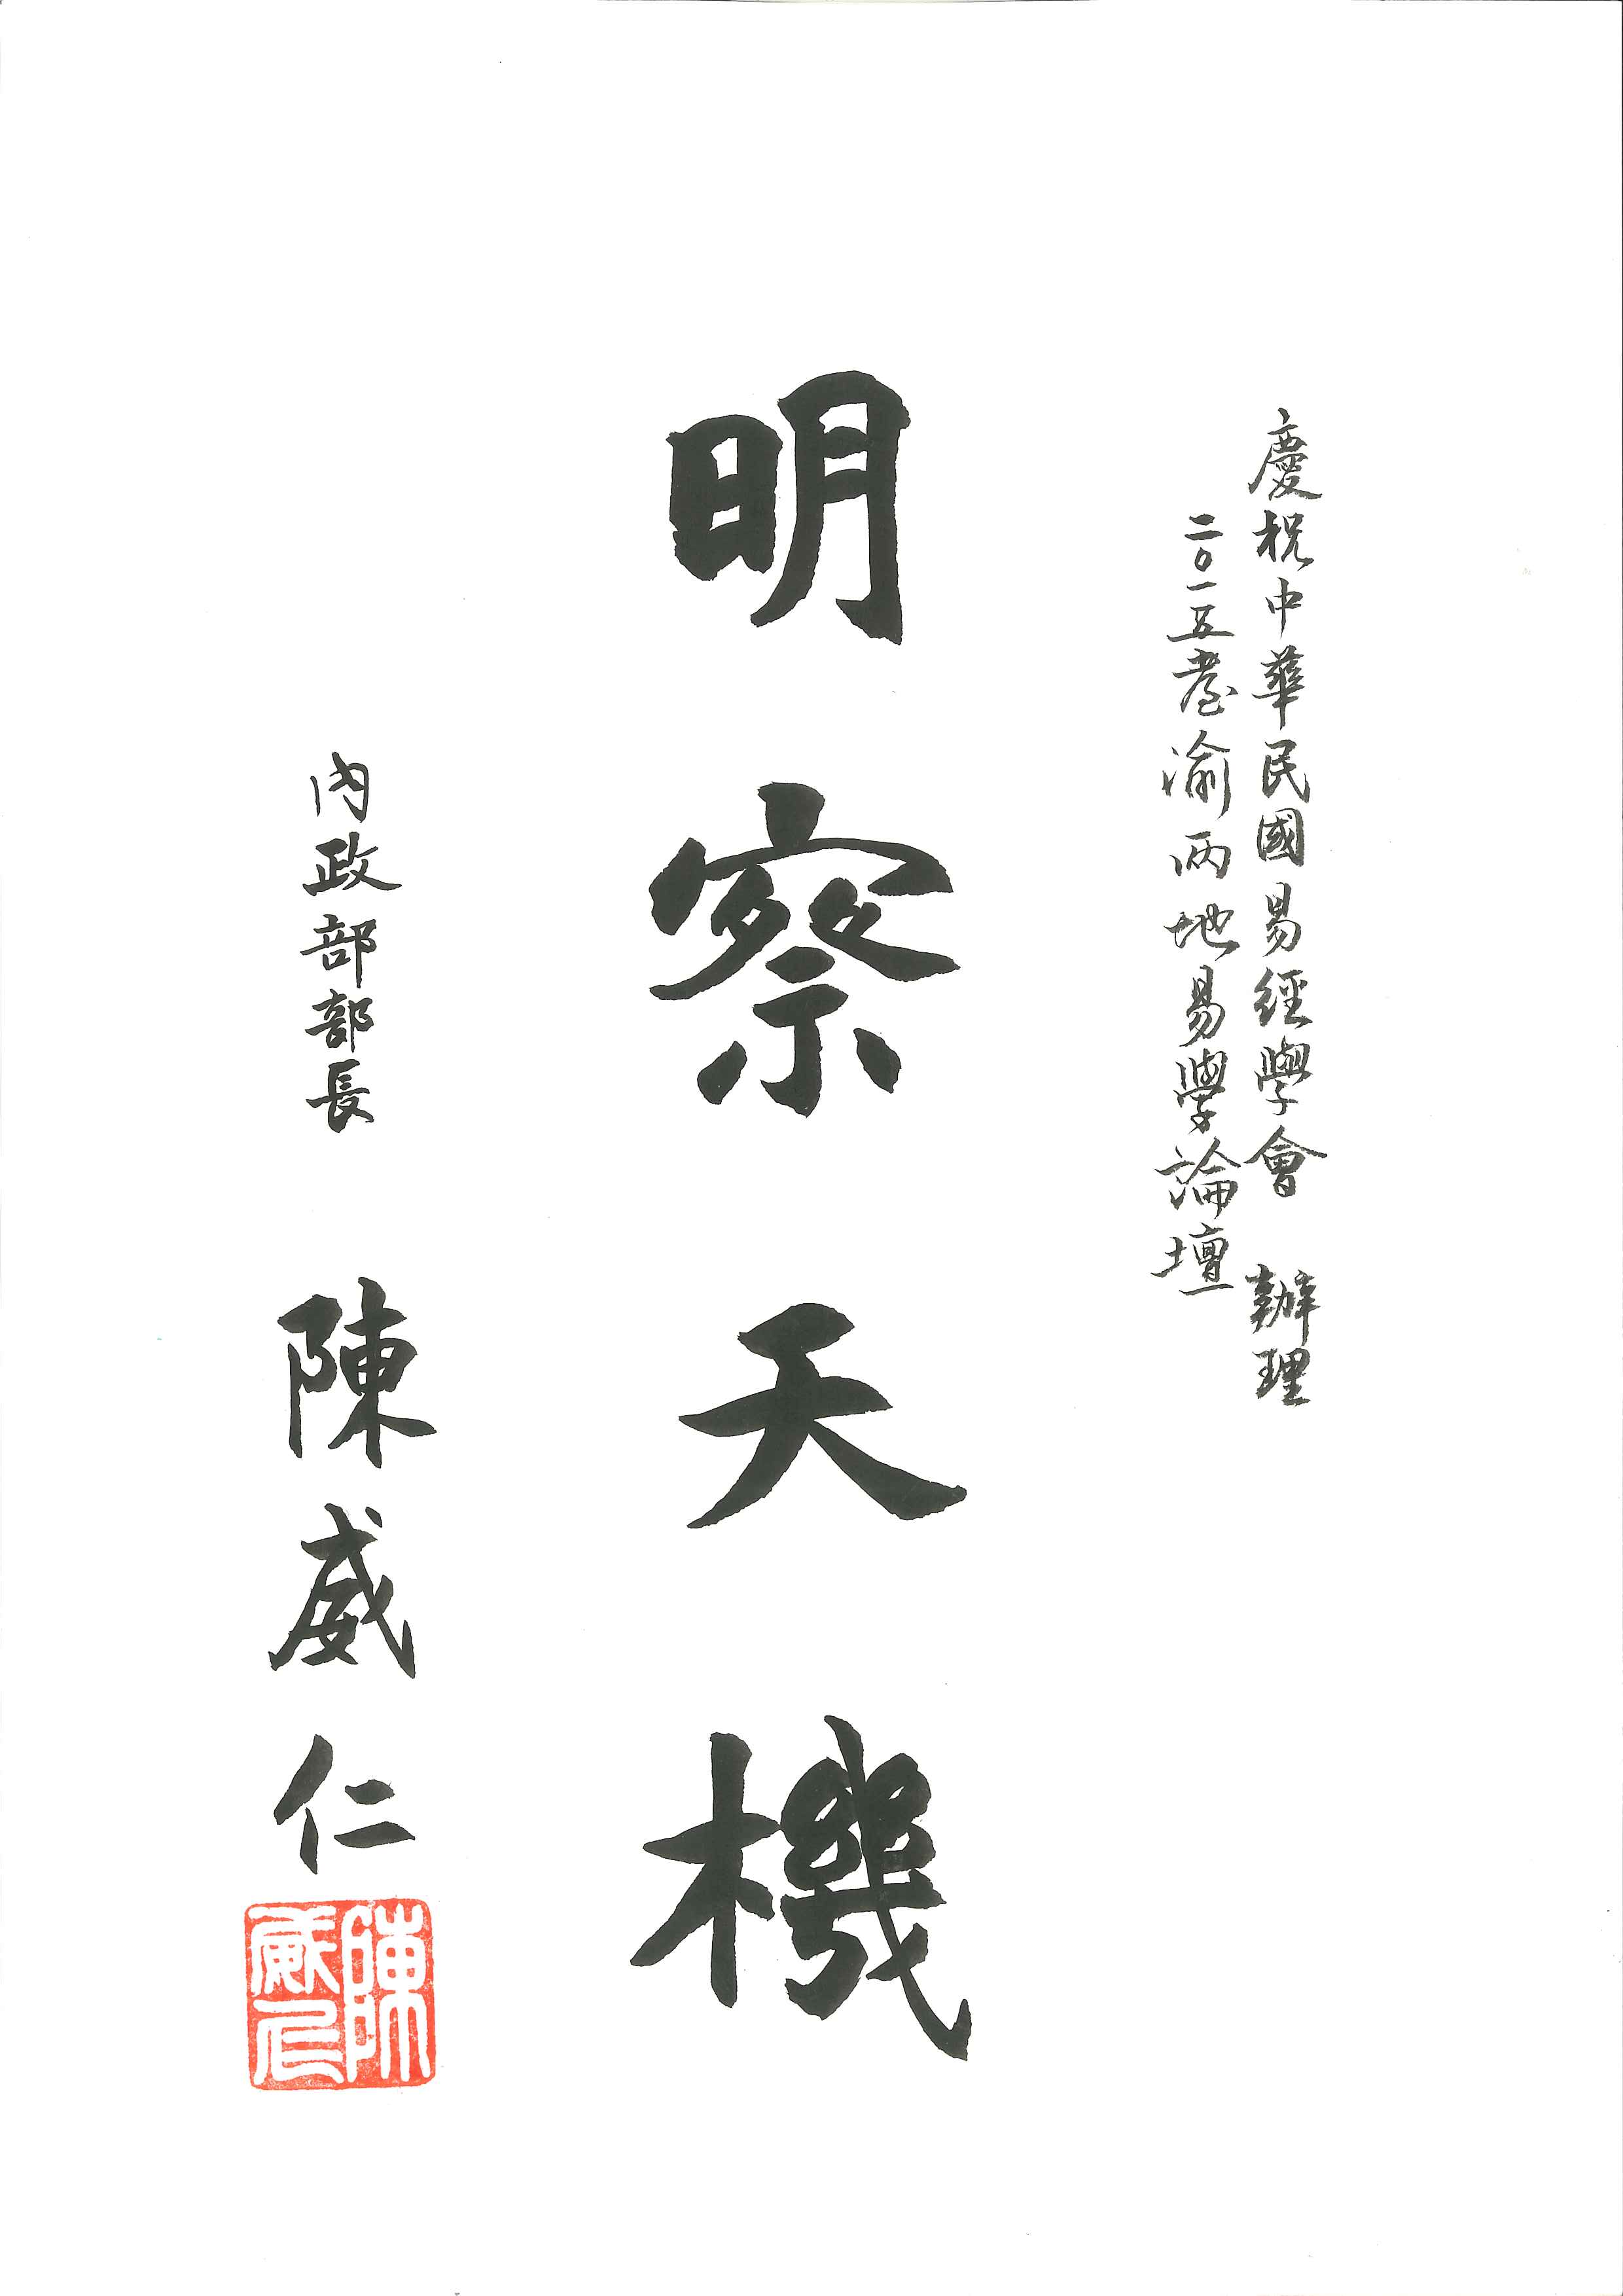 慶祝中華民國易經學會 辦理
二〇一五臺渝兩地易學論壇
明察天機
內政部部長 陳威仁
陳威仁